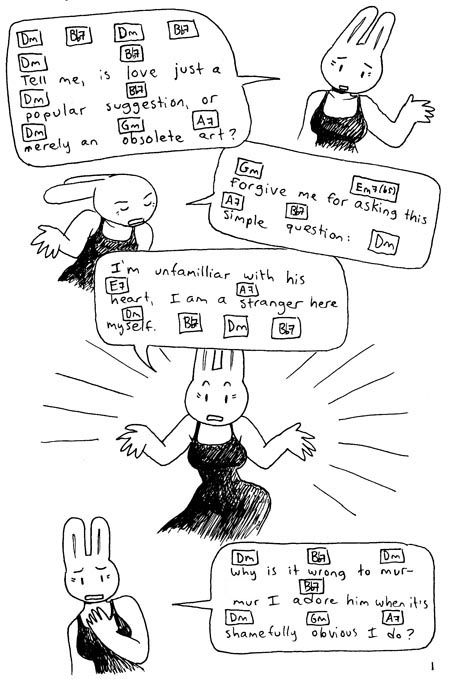 Dm Bb7 Dm Bb7
Dm Bb7
Tell me, is love just a
Dm Bb7
popular suggestion, or
Dm Gm A7
merely an obsolete art?
Gm Em7(b5)
forgive me for asking this
A7 Bb7
simple question: Dm
I'm unfamilliar with his
E7 A7
heart, I am a stranger here
Dm
myself. Bb7 Dm Bb7
Dm Bb7 Dm
why is it wrong to mur-
Bb7
mur I adore him when it's
Dm Gm A7
shamefully obvious I do?
1